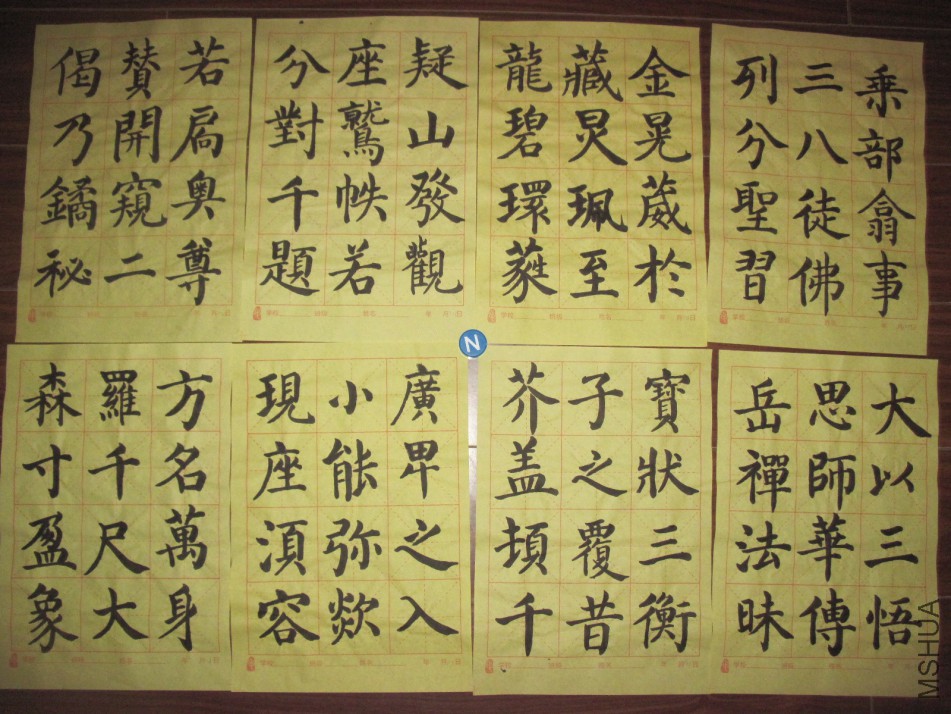 偈贊若
乃開扃
鐍窺奧
秘二尊
分座疑
對鷲山
千帙發
題若觀
龍藏金
碧炅晃
環珮葳
蕤至於
列三乘
分八部
聖徒翕
習佛事
森羅方
寸千名
盈尺萬
象大身
現小廣
座能卑
湏弥之
容欻入
芥子寶
盖之狀
頓覆三
千昔衡
岳思大
禪師以
法華三
昧傳悟
N
MSHUA